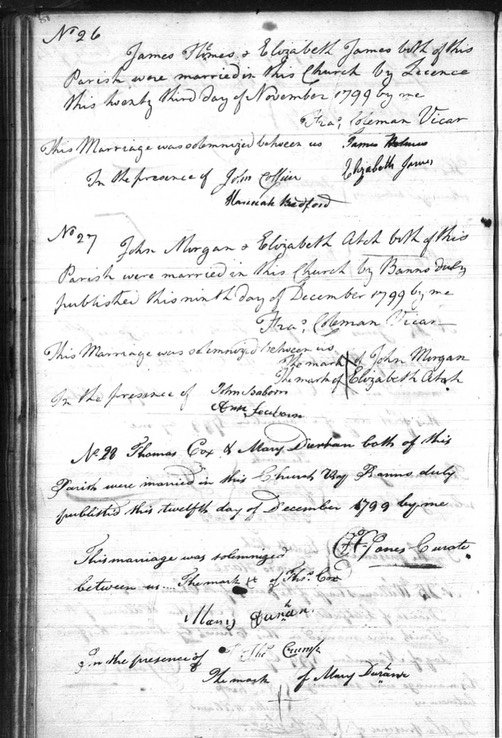 No 26
James Holmes & Elizabeth James both of this
Parish were married in this Church by Licence
this twenty third Day of November 1799 by me
Fras. Coleman Vicar
This Marriage was solemnized between us James Holmes
Elizabeth James
In the presence of John Collier
Hannah Bedford
No 27
John Morgan & Elizabeth Atch both of this
Parish were married in this Church by Banns duly
published this ninth day of December 1799 by me
Fras. Coleman Vicar
This Marriage was solemnized between us
The mark X of John Morgan
The mark of Elizabeth Atch
In the presence of
No 28 Thomas Cox & Mary Durhan both of this
Parish were married in this Church By Banns duly
published this twelfth day of December 1799 by me
Jones Curate
This marriage was solemnized
between us.... The mark of Thos. Cox
Mary Durhan.
In the presence of Thos. Crump
The mark of Mary